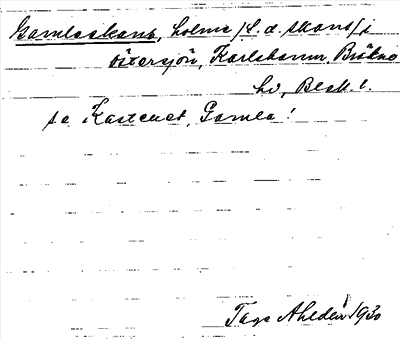 Gamlaskans, holme /f.d. skans/ i
Östersjön, Karlshamn, Bräkne
hd, Blek. l.
se Kastellet, Gamla!
Tage Ahldén 1930